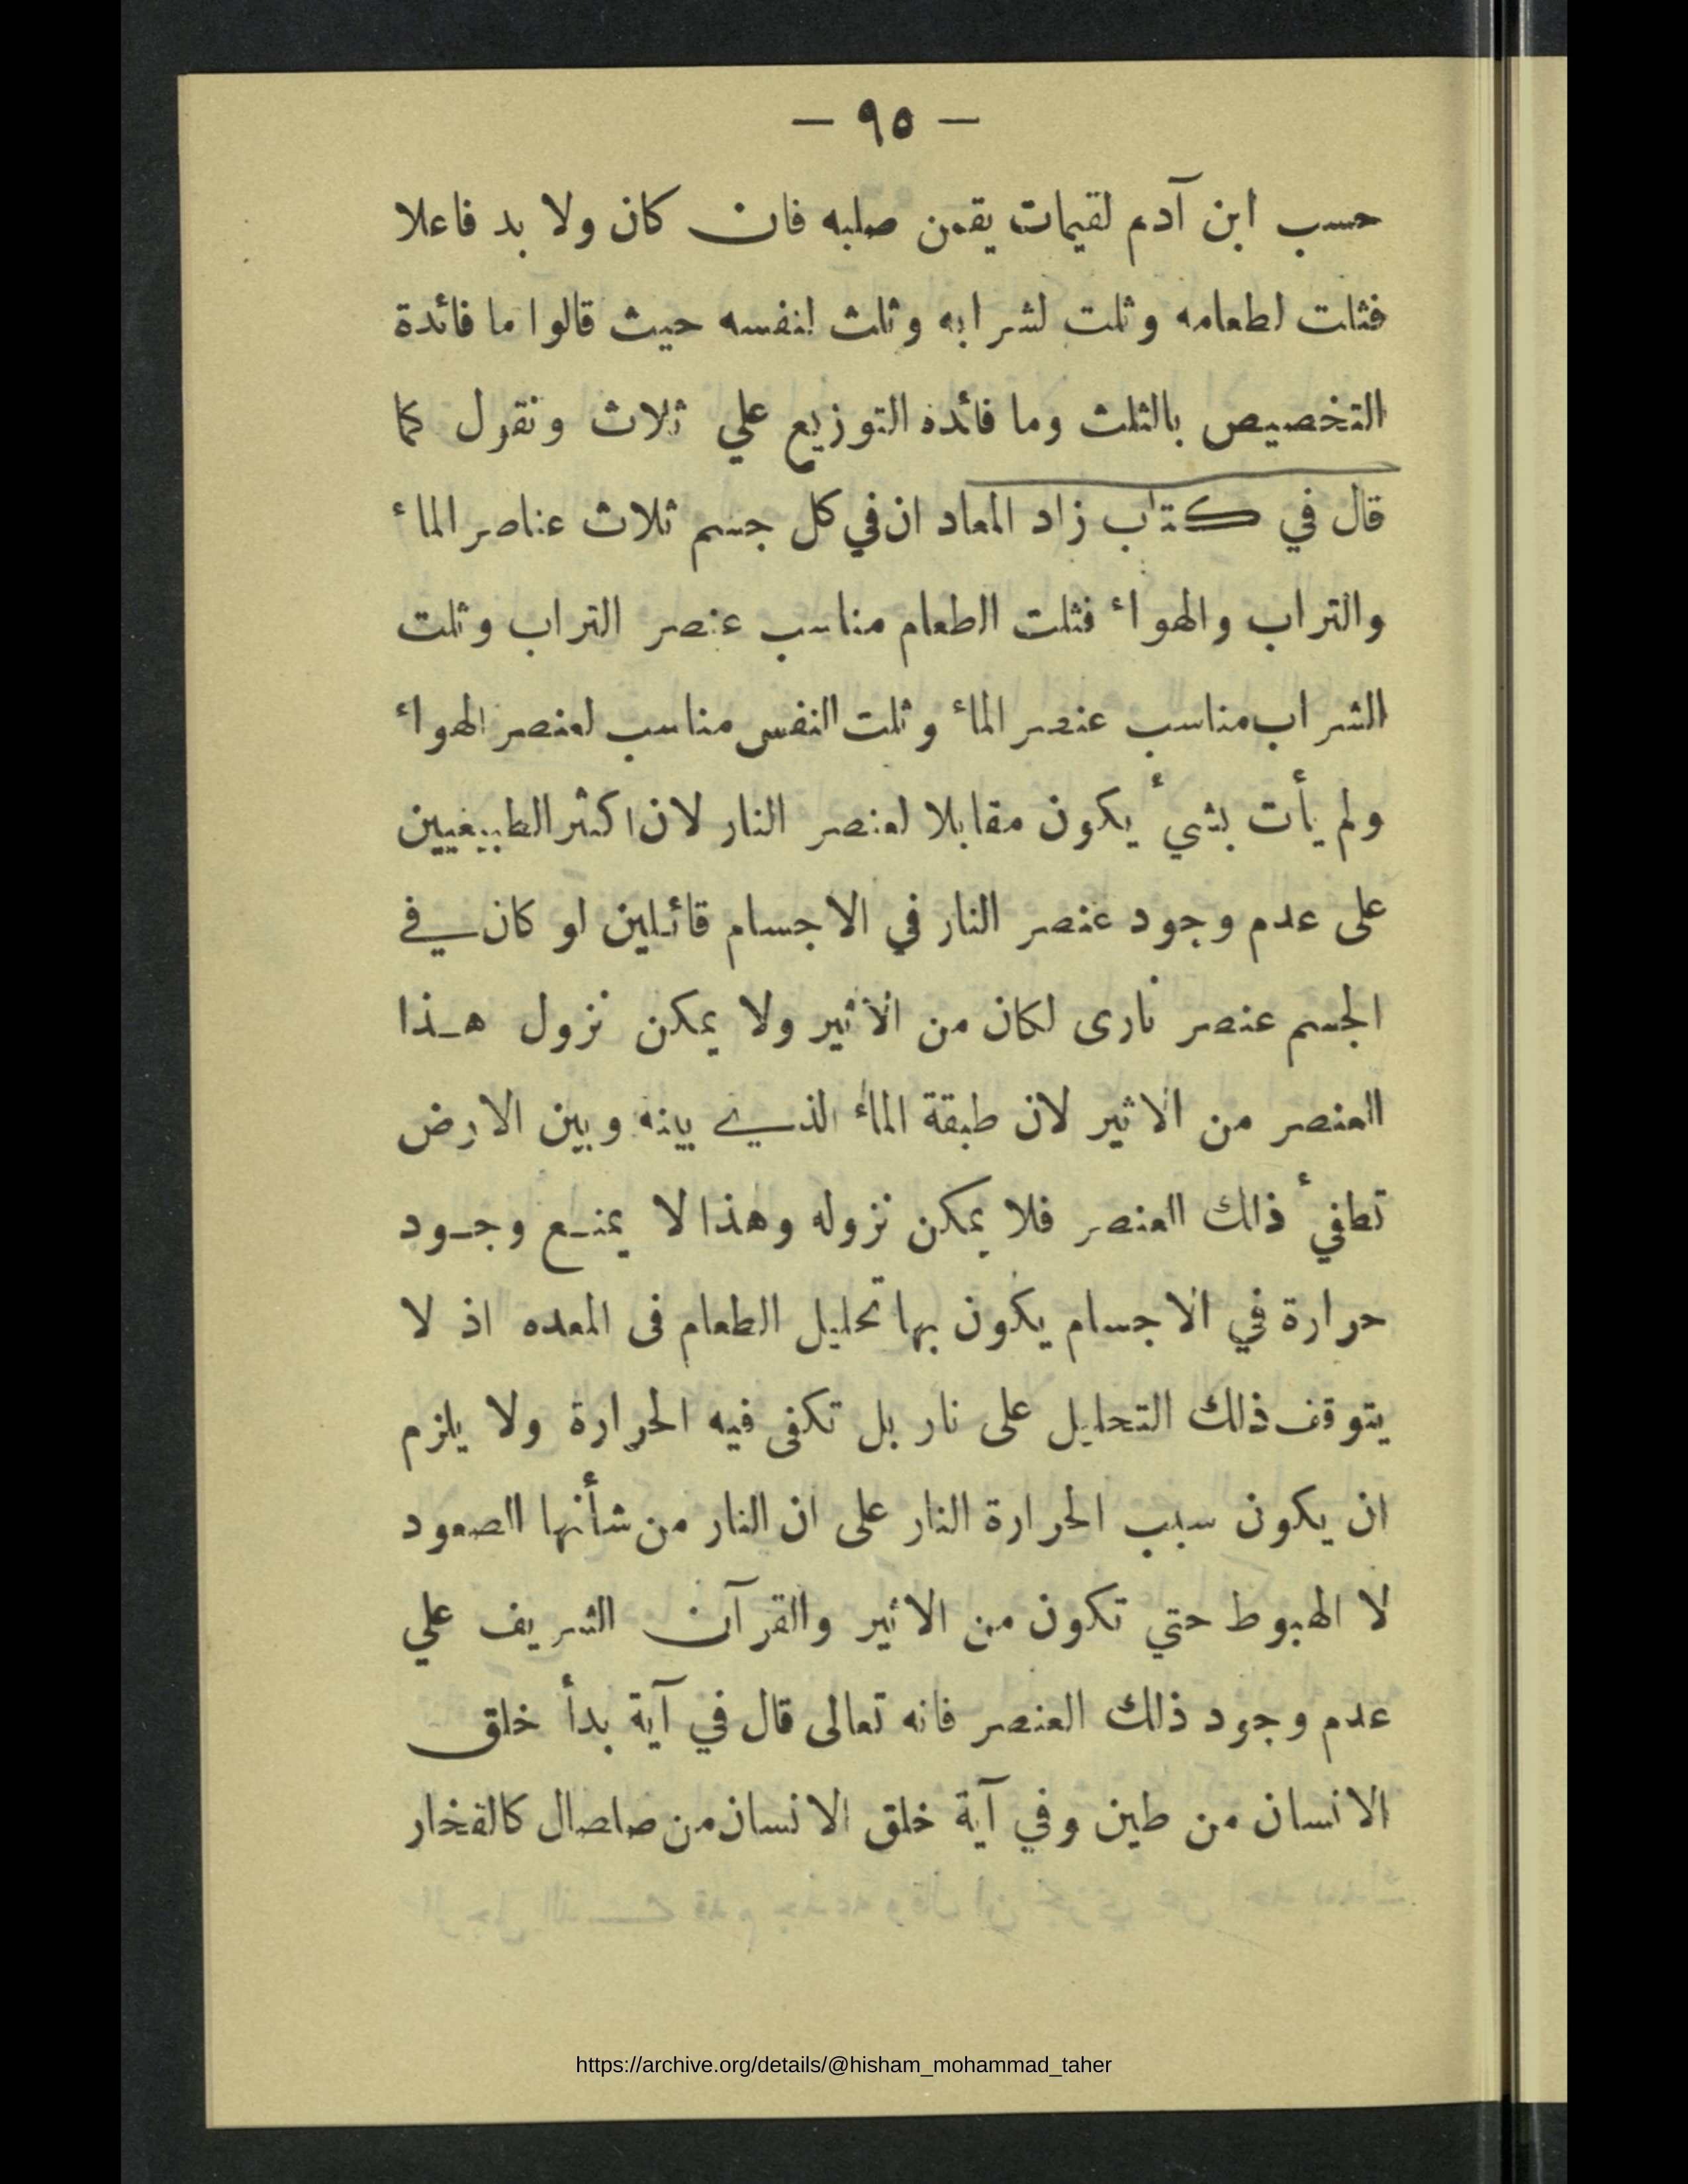 — ٩٥ —
حسب ابن آدم لقيمات يقمن صلبه فان كان ولا بد فاعلا
فثلت لطعامه وثلت لشرابه وثلث لنفسه حيث قالوا ما فائدة
التخصيص بالثلث وما فائده التوزيع علي ثلاث ونقول كما
قال في كتاب زاد المعاد ان في كل جسم ثلاث عناصر الماء
والتراب والهواء فثلت الطعام مناسب عنصر التراب وثلت
الشراب مناسب عنصر الماء وثلت النفس مناسب لعنصر الهواء
ولم يأت بشيء يكون مقابلا لعنصر النار لان اكثر الطبيعيين
على عدم وجود عنصر النار في الاجسام قائلين لو كان في
الجسم عنصر نارى لكان من الاثير ولا يمكن نزول هذا
العنصر من الاثير لان طبقة الماء الذي بينه وبين الارض
تطفيء ذلك العنصر فلا يمكن نزوله وهذا لا يمنع وجود
حرارة في الاجسام يكون بها تحليل الطعام فى المعده اذ لا
يتوقف ذلك التحليل على نار بل تكفى فيه الحرارة ولا يلزم
ان يكون سبب الحرارة النار على ان النار من شأنها الصعود
لا الهبوط حتي تكون من الاثير والقرآن الشريف علي
عدم وجود ذلك العنصر فانه تعالى قال في آية بدأ خلق
الانسان من طين وفي آية خلق الانسان من صلصال كالفخار
https://archive.org/details/@hisham_mohammad_taher